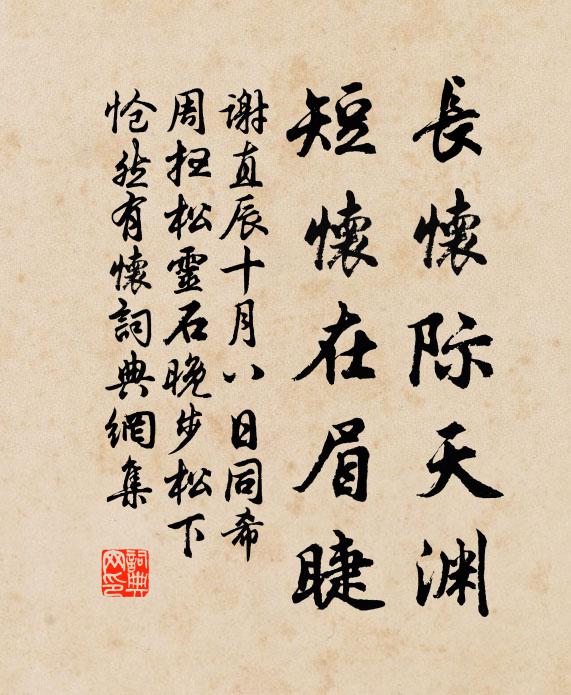 長懷际天渊
短懷在眉睫
謝直辰十月八日同希
周扭松靈石晚步松下
怆然有懷詞典網集
詞典
网印